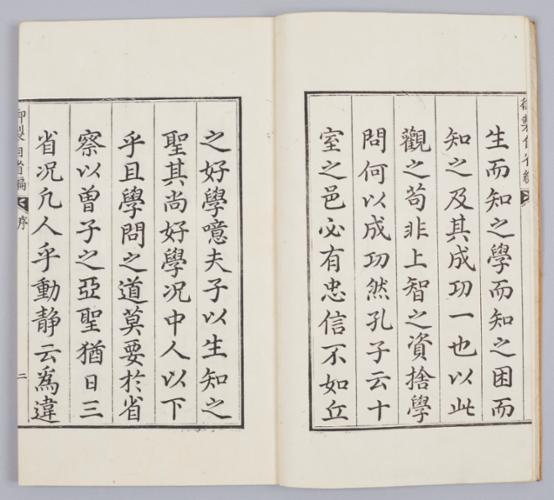 生而知之學而知之困而
知之及其成功一也以此
觀之苟非上智之資捨學
問何以成功然孔子云十
室之邑必有忠信不如丘
之好學噫夫子以生知之
聖其尚好學况中人以下
乎且學問之道莫要於省
察以曾子之亞聖猶日三
省况凡人乎動静云爲違
御製自省編
序
二